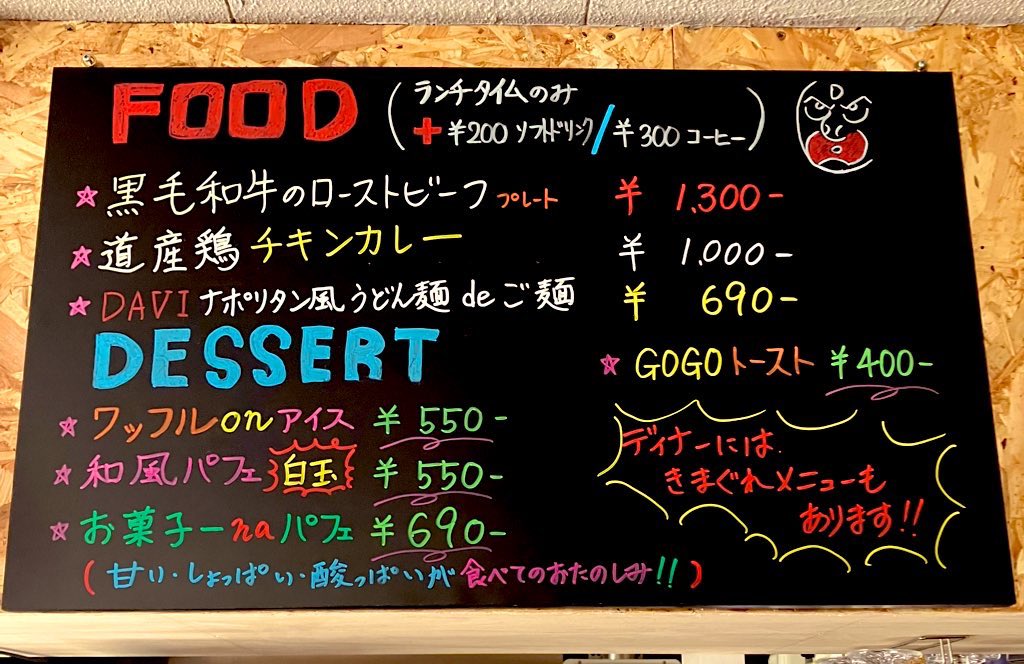 FOOD (ランチタイムのみ
+¥200 ソフトドリンク/¥300 コーヒー)
☆黒毛和牛のローストビーフ プレート ¥ 1,300-
☆道産鶏 チキンカレー ¥ 1,000-
☆DAVI ナポリタン風うどん麺 de ご麺 ¥ 690-
DESSERT
☆GOGOトースト ¥400-
☆ワッフルonアイス ¥ 550-
☆和風パフェ 白玉 ¥ 550-
☆お菓子ーnaパフェ ¥690-
(甘い・しょっぱい・酸っぱいが食べてのおたのしみ!!)
ディナーには
きまぐれメニューも
あります!!